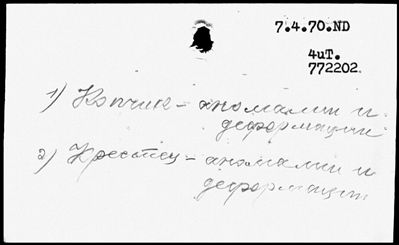 7.4.70.ND
4иT.
772202.
1) Копчик – аномалии и
деформации
2) Крестец – аномалии и
деформации